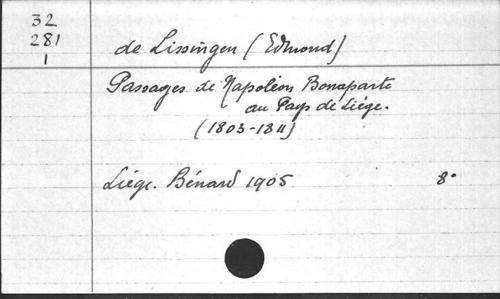 32
281
1
de Lissingen (Edmond)
Passages de Napoléon Bonaparte
au Pays de Liége.
(1803-1811)
Liége. Bénard 1905 8°